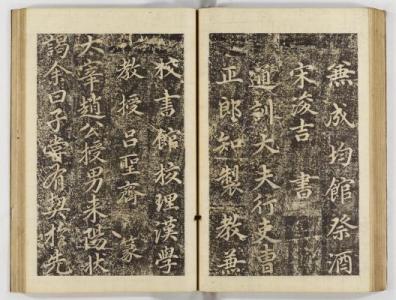 兼成均館祭酒
宋浚吉 書
通訓大夫行吏曹
正郎知製教兼
校書館校理漢學
教授呂聖齊 篆
大宰趙公授男未陽狀
謁余曰子嘗有契於先